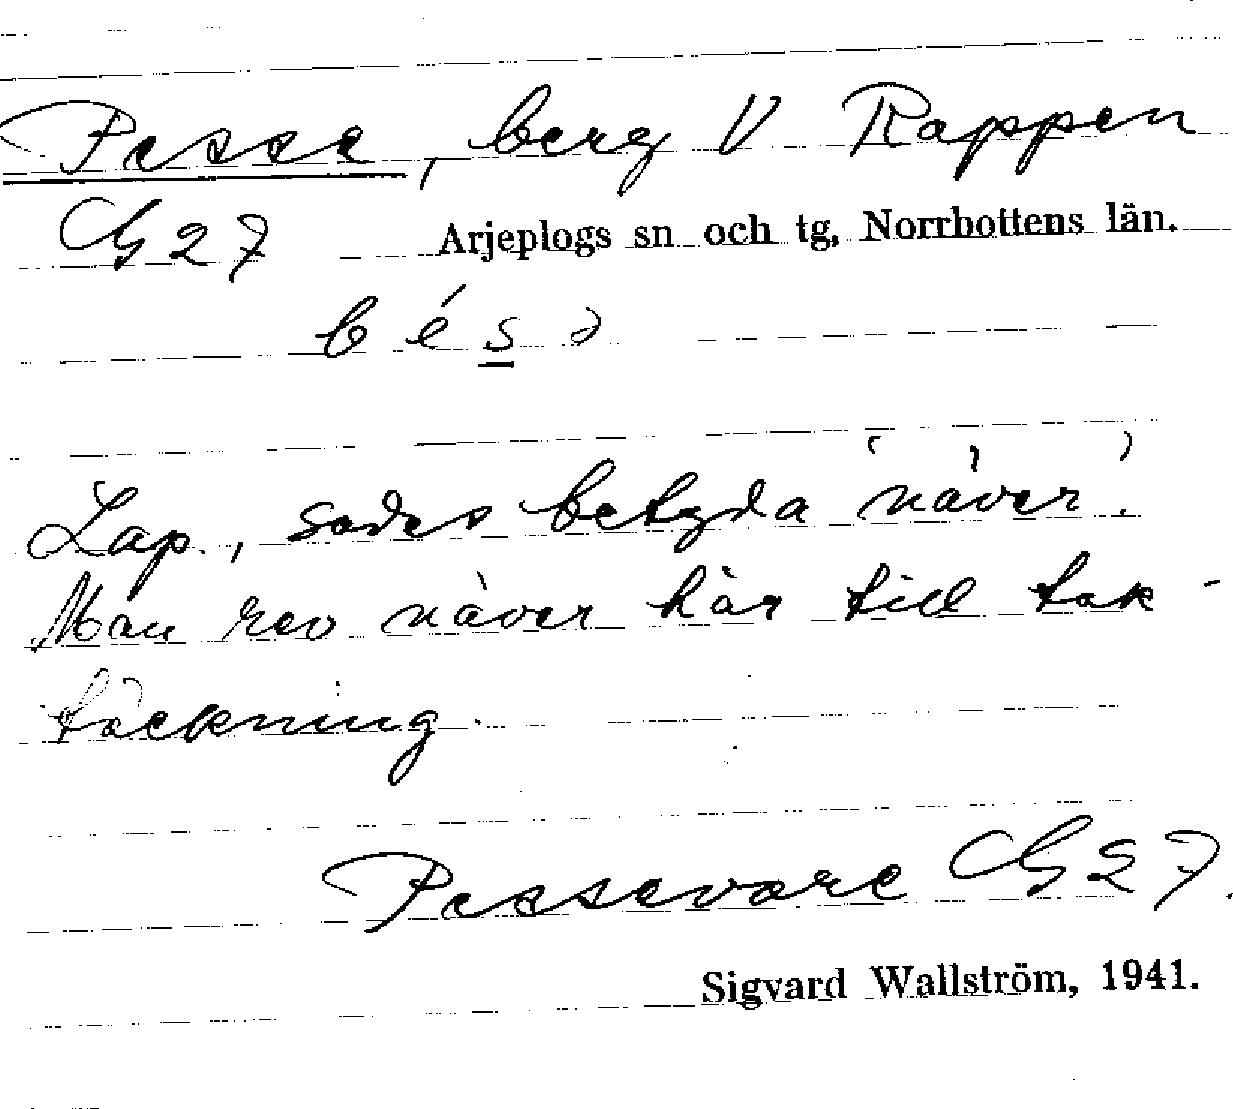 Pesse, berg V Rappen
G 27 Arjeplogs sn och tg, Norrbottens län.
b é s ə
Lap., sades betyda 'näver'.
Man rev näver här till tak-
täckning.
Pessevare G 27.
Sigvard Wallström, 1941.